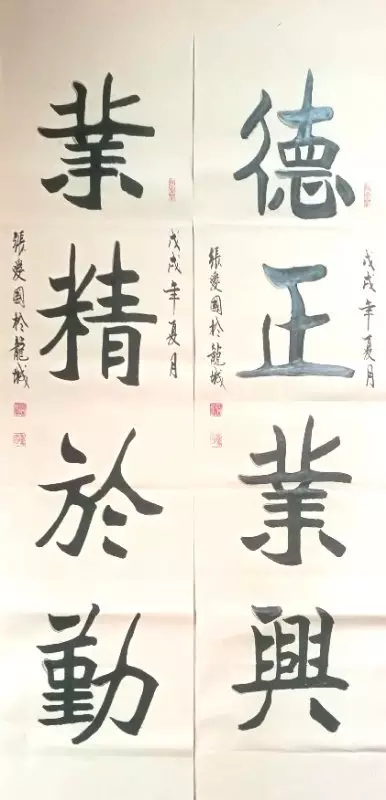 戊戌年夏月
德正業興
張愛國於龍城
戊戌年夏月
業精於勤
張愛國於龍城